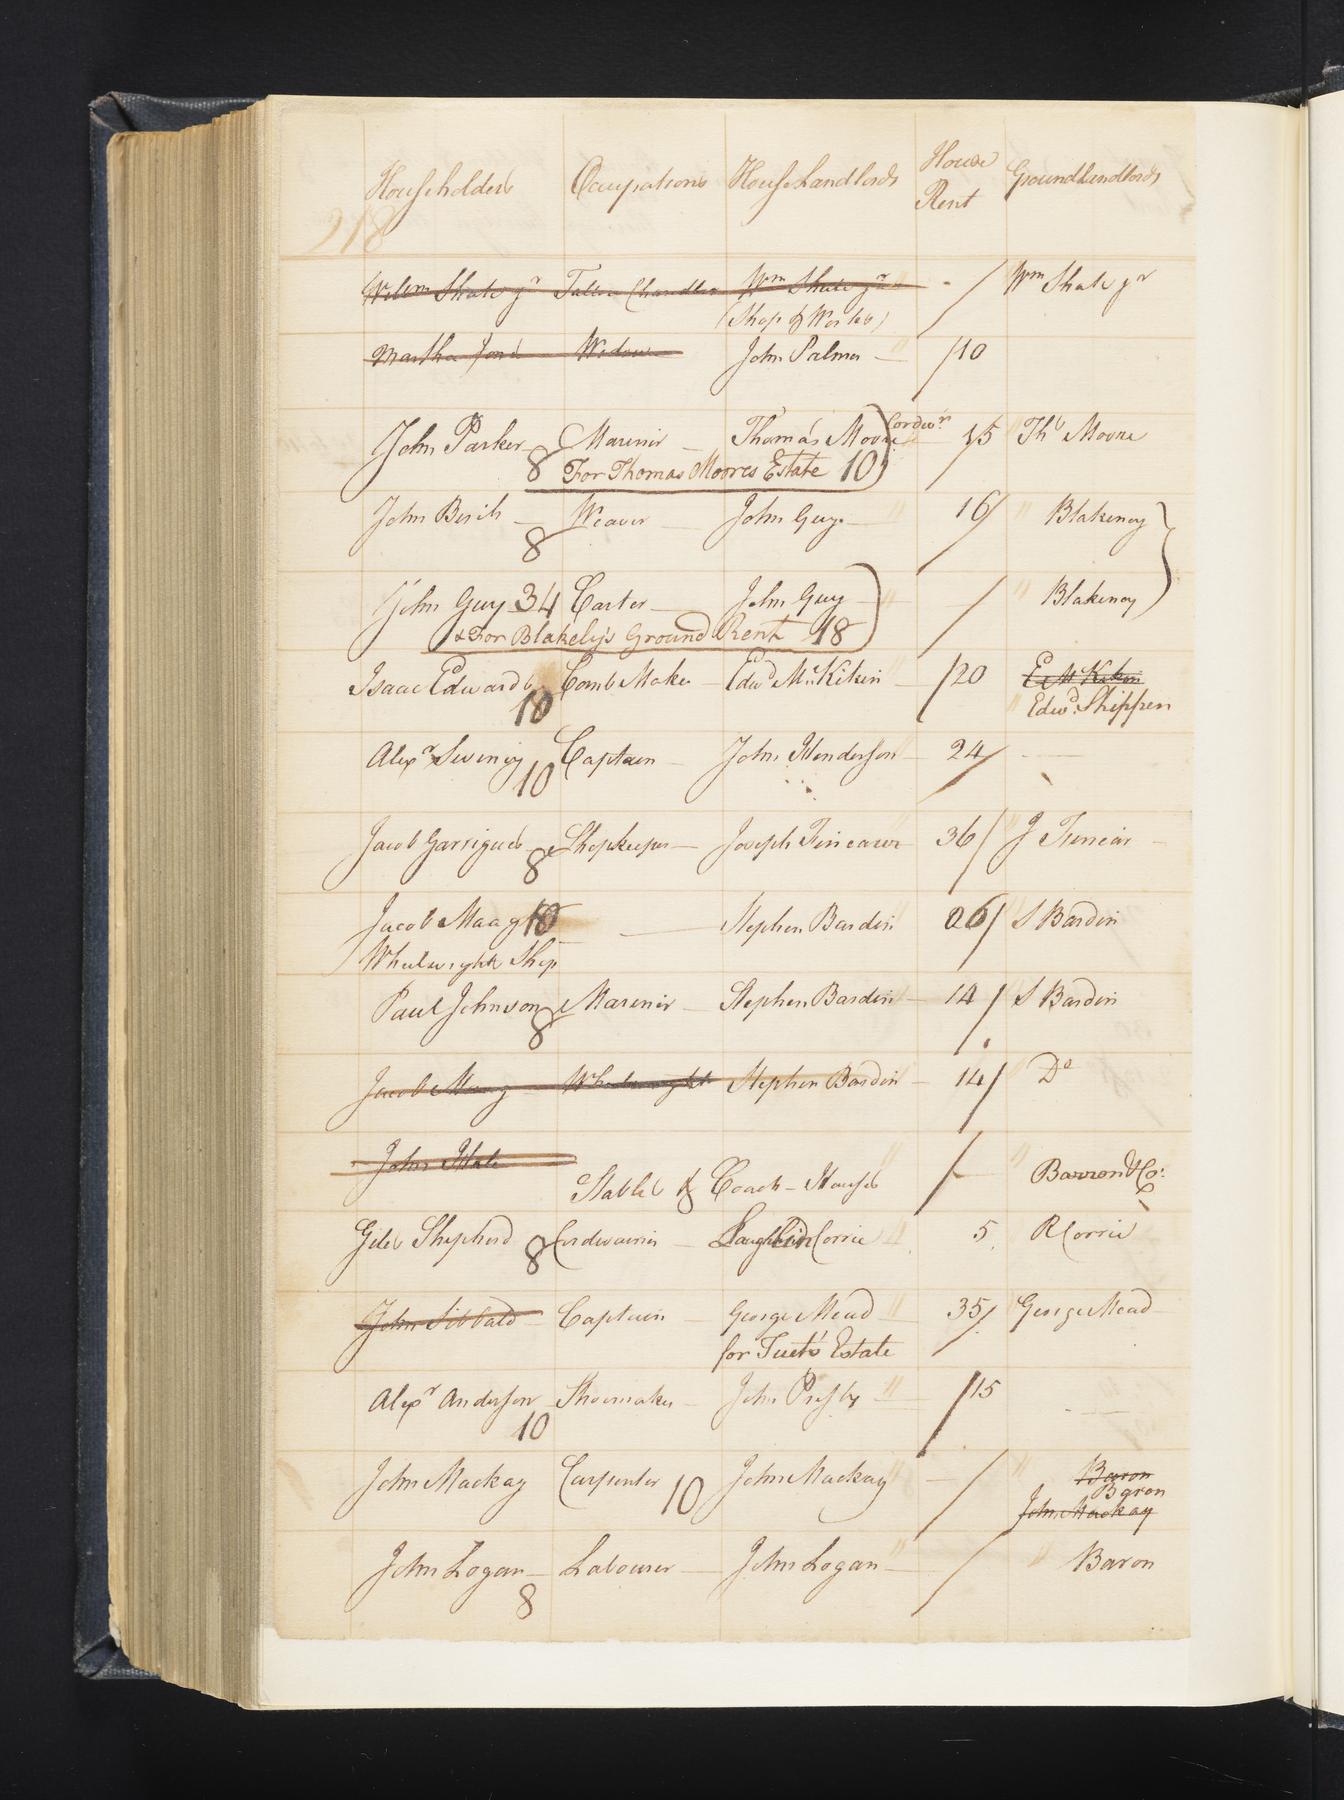 Householders Occupations House Landlords House Rent Groundlandlords
218
Willm Shute Jr Tallow Chandler Wm Shute Jr - / Wm Shute Jr
(Shop & Works)
Martha Ford Widow John Palmer /10
John Parker Mariner Thomas Moore Cordwr 15 Ths Moore
8 For Thomas Moores Estate 10
John Birch Weaver John Guy 16/ " Blakeney
8
John Guy 34 Carter John Guy / " Blakeney
& For Blakely's Ground Rent 18
Isaac Edwards Comb Maker Edwd McKikin /20 E McKikin
10 " Edwd Shippen
Alexr Sweney Captain John Henderson 24/
10
Jacob Garrigues Shopkeeper Joseph Fineaur 36/ J
8
Jacob Maag 10 Stephen Bardin 26/ S Bardin
Whelwright Shop
Paul Johnson Marinir Stephen Bardin 14/ S Bardin
8
Jacob Maag Whelwright Stephen Bardin 14/ Do
John Hale
Stables & Coach-House / " Barron & Co:
Giles Shepherd Cordwainer Corrie 5 R Corrie
8
John Sibbald Captain George Mead 35/ George Mead
for Tuets Estate
Alexr Anderson Shoemaker John Presby /15
10
John Mackay Carpenter 10 John Mackay / " Baron
Baron
John Mackay
John Logan Labourer John Logan / " Baron
8